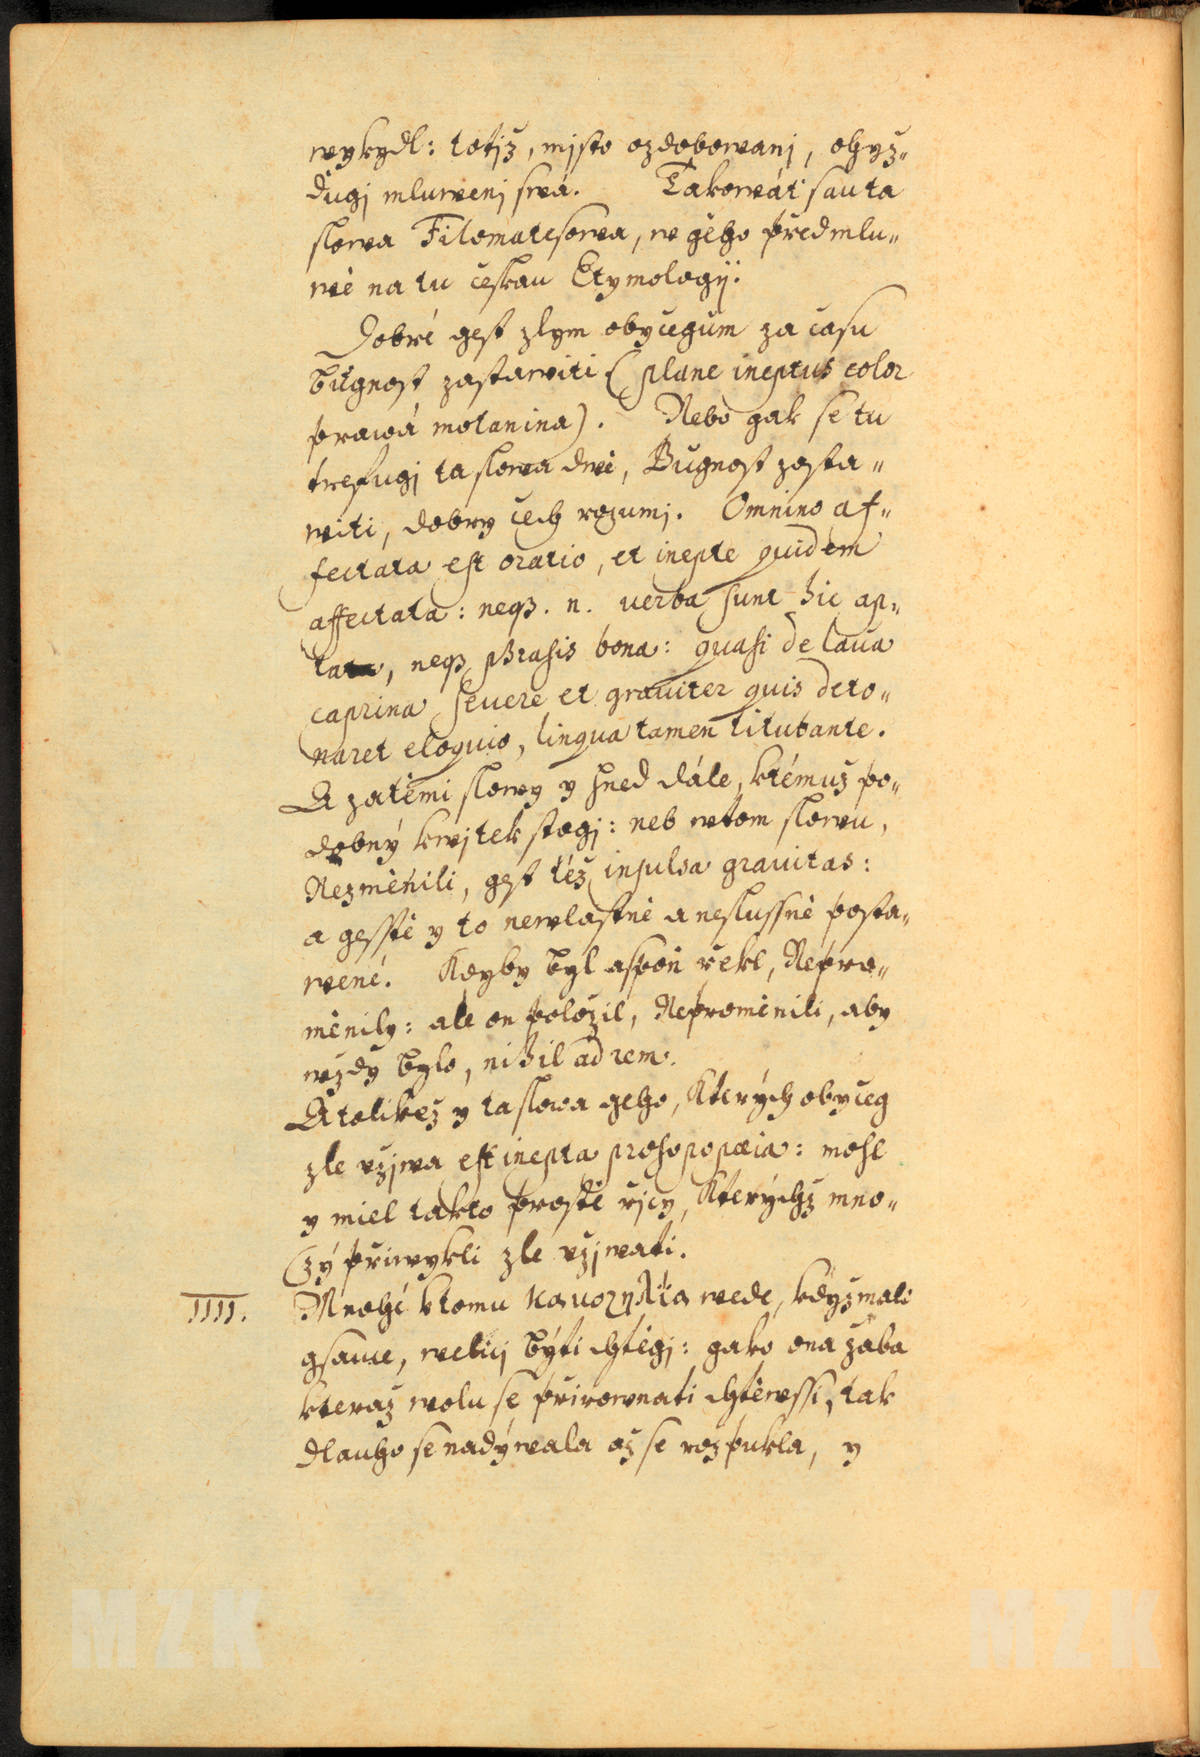 wykydl: totjž, mjsto ozdobowanj, ohyž„
ďugj mluwenj swá. Takowát' sau ta
slowa Filomatesowa, w geho předmlu„
wě na tu českau Etymologij.
Dobré gest zlym obyčegům za času
bůgnost zastawiti (plane ineptus color
prawá motanina). Nebo gak se tu
trefugj ta slowa dwě, Bugnost zasta„
witi, dobry čech rozumj. Omnino af„
fectata est oratio, et inepte quidem
affectata: neqз. n. verba sunt hic ap„
ta, neqз phrasis bona: quasi de laua
caprina seuere et grauiter quis deto„
naret eloquio, lingua tamen titubante.
A za těmi slowy y hned dále, k témuž po„
dobný kwjtek stogj: neb w tom slowu,
Nezměnili, gest též insulsa grauitas:
a gesstě y to newlastně a neslussně posta„
wené. Kdyby byl aspoň řekl, Nepro„
měnily: ale on položil, Neproměnili, aby
wždy bylo, nihil ad rem.
A tolikéž y ta slowa geho, Kterých obyčeg
zle užjwa est inepta prosopopæia: mohl
y miel takto prostě řjcy, Kterýchž mno„
zý přiwykli zle užjwati.
IIII. Mnohé k tomu wede, když mali
gsauce, welicj býti chtěgj: gako ona žaba
kteraž wolu se přirownati chtěwssi, tak
dlauho se nadýwala až se rozpukla, y
MZK MZK